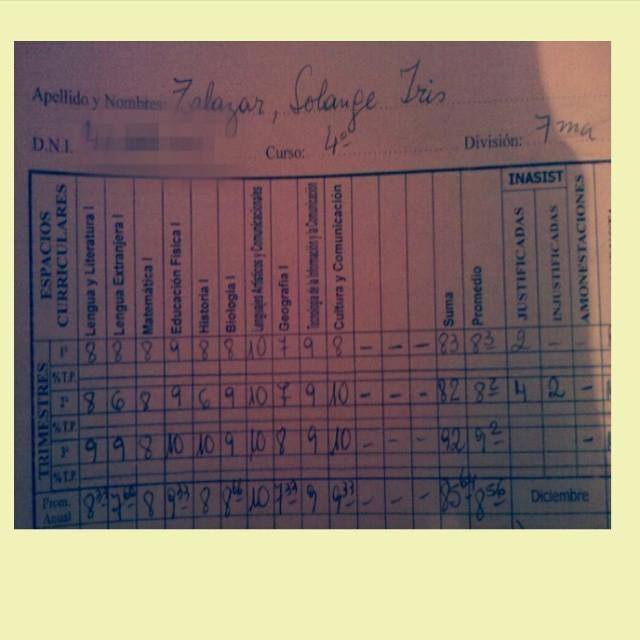 Apellido y Nombres: Zalazar, Solange Iris
D.N.I.
Curso: 4º División: 7ma
ESPACIOS CURRICULARES
Lengua y Literatura I
Lengua Extranjera I
Matemática I
Educación Física I
Historia I
Biología I
Lenguajes Artísticos y Comunicacionales
Geografía I
Tecnología de la Información y la Comunicación
Cultura y Comunicación
Suma
Promedio
INASIST
JUSTIFICADAS
INJUSTIFICADAS
AMONESTACIONES
TRIMESTRES
1º 8 8 8 9 8 8 10 7 9 8 - - - 83 83 2 -
% T.P.
2º 8 6 8 9 6 9 10 7 9 10 - - - 82 82 4 2 -
% T.P.
3º 9 9 8 10 10 9 10 8 9 10 - - - 92 92 -
% T.P.
Prom. Anual 8 33 7 66 8 9 33 8 8 66 10 7 33 9 9 33 - - - 85 64 8 56 Diciembre